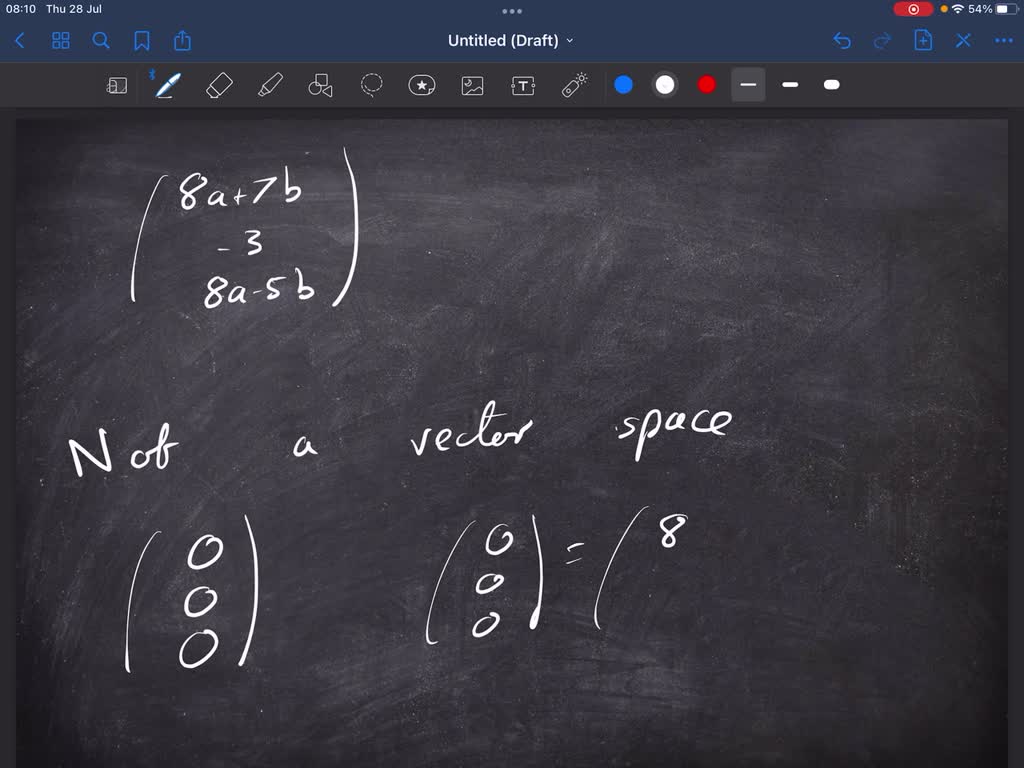 08:10 Thu 28 Jul
54%
Untitled (Draft)
T
8a+7b
-3
8a-5b
Not a vector space
0 0 = 8
0 0
0 0